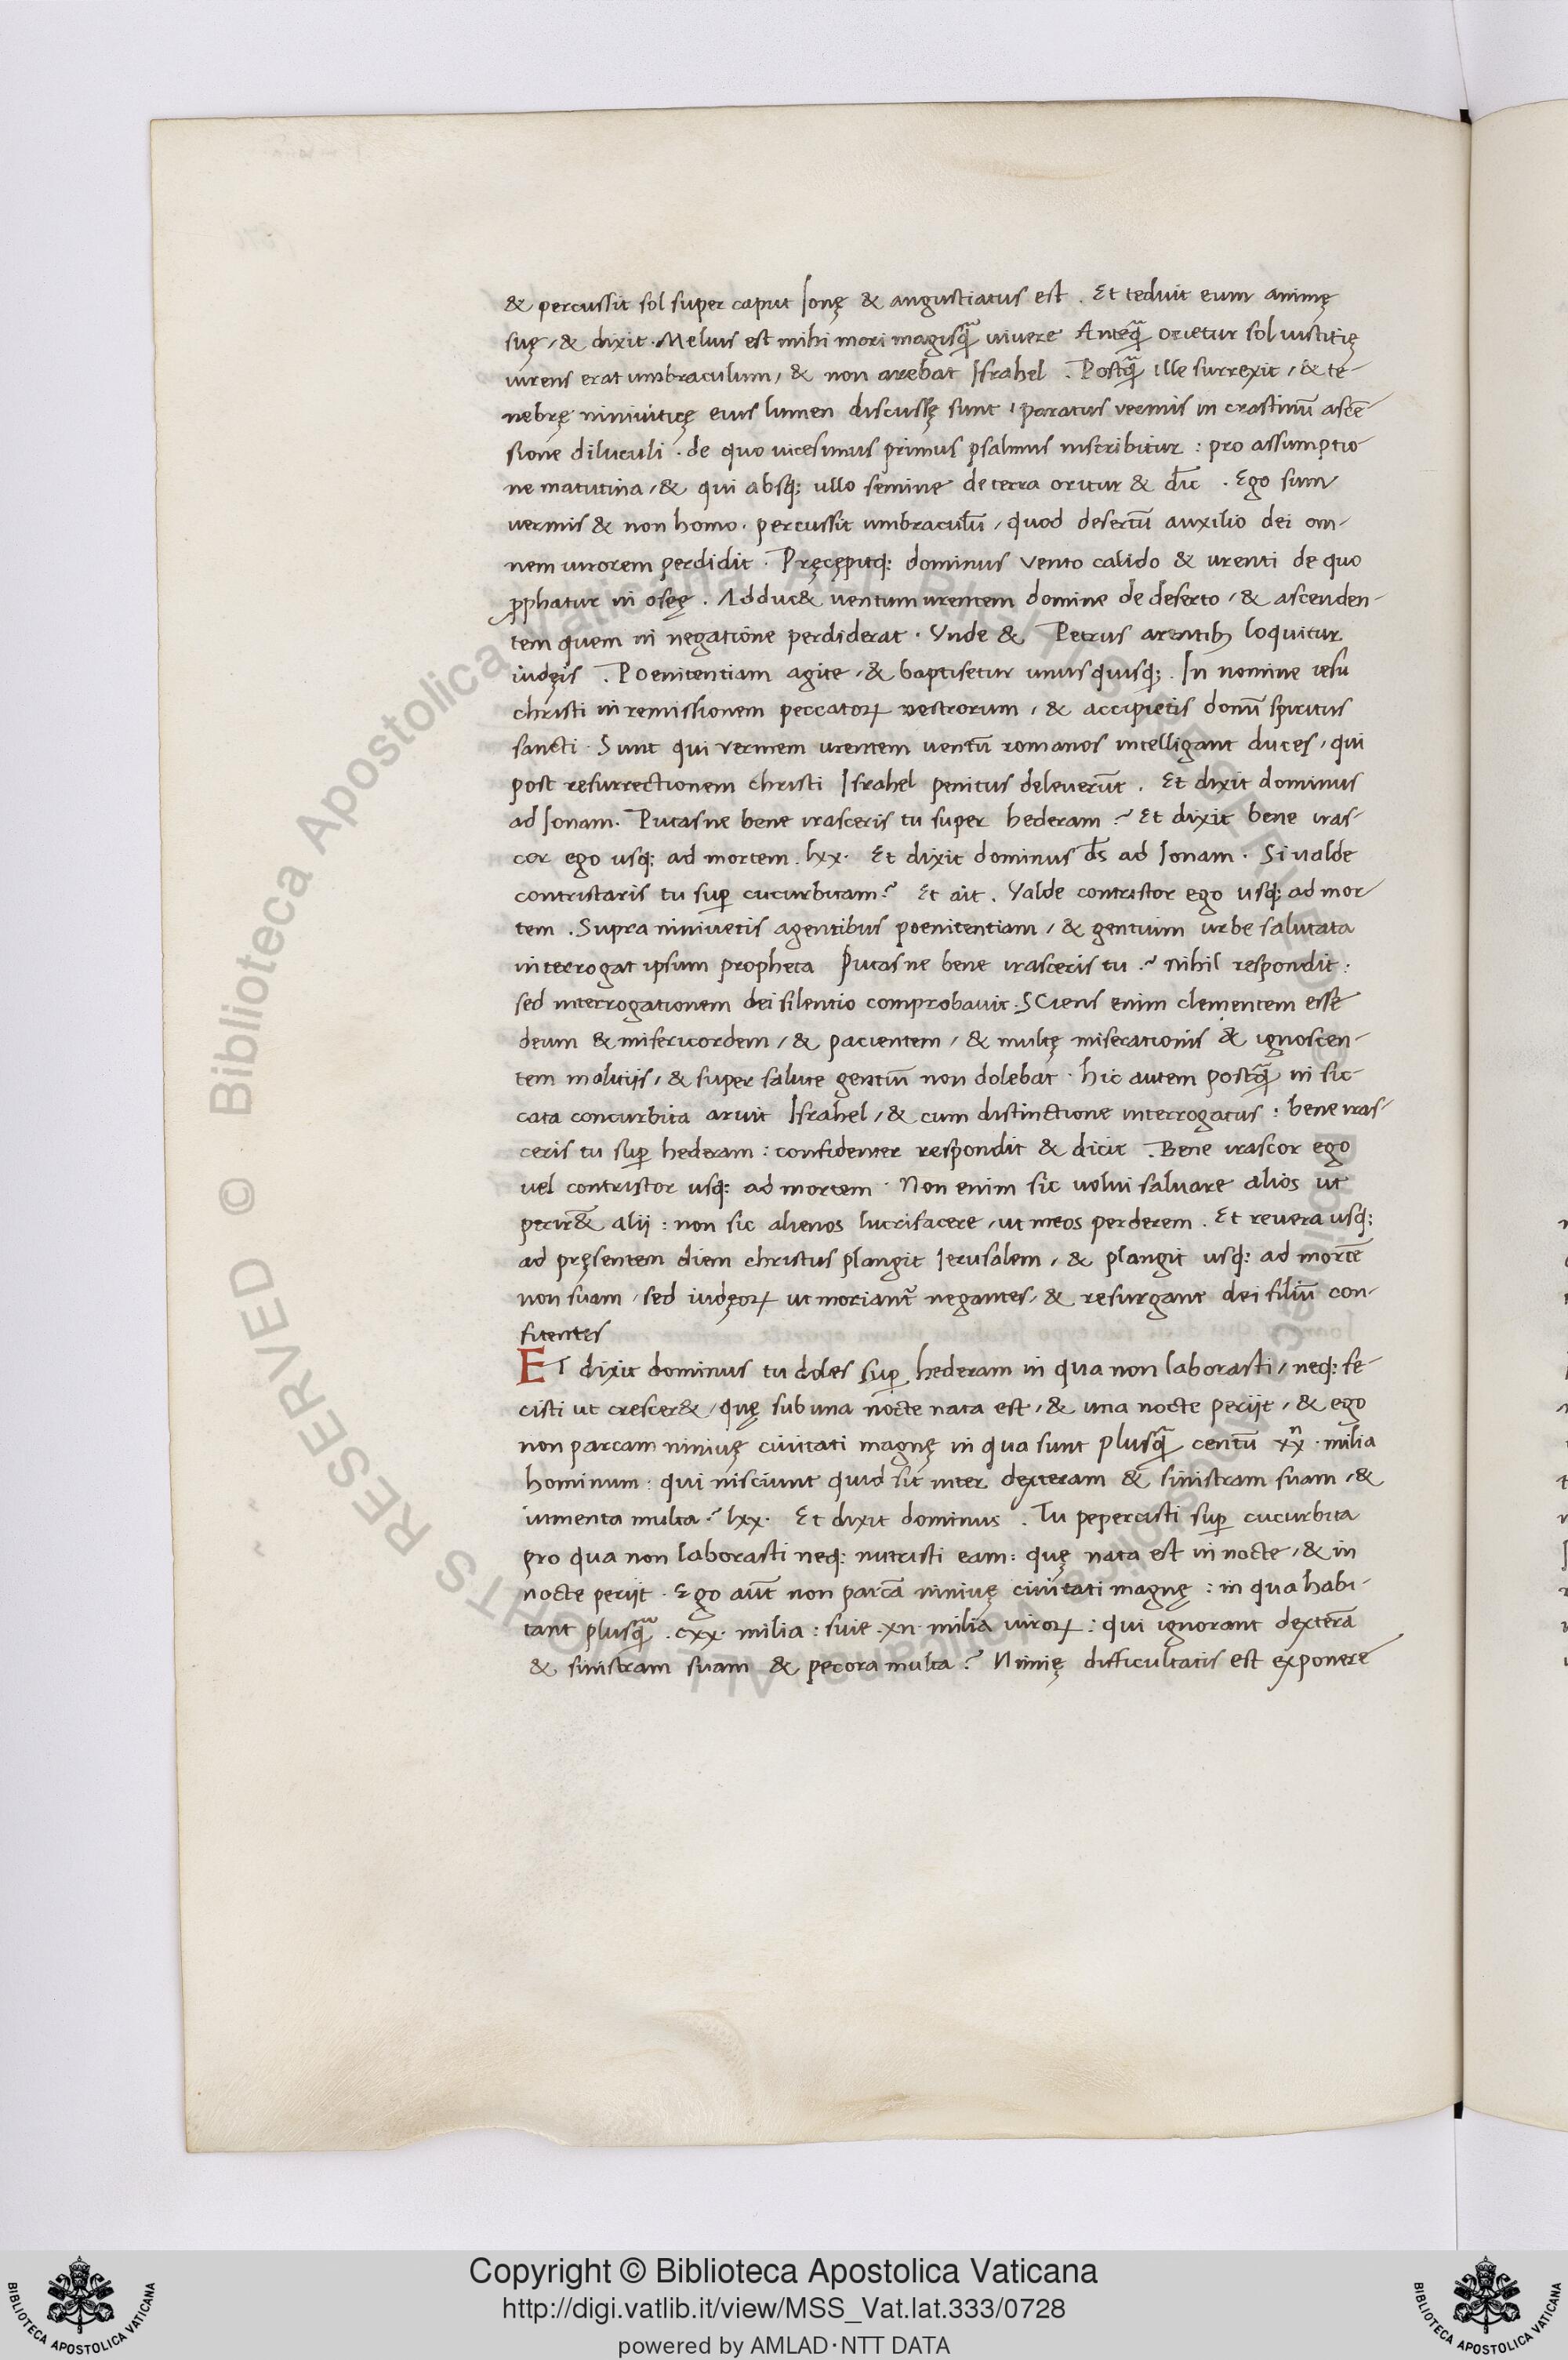 & percussit sol super caput Ionę & angustiatus est . Et teduit eum animę
suę / & dixit . Melius est mihi mori magisq̃ uiuere Anteq̃ orietur sol iustitię
uirens erat umbraculum / & non arebat Israhel . Postq̃ ille surrexit / & te-
nebrę niniuiticę eius lumen discussę sunt / paratus vermis in crastinũ ascẽ
sione diluculi . de quo uicesimus primus psalmus inscribitur : pro assumptio
ne matutina / & qui absq; ullo semine de terra oritur & dic̃ . Ego sum
vermis & non homo . percussit umbraculũ / quod desertũ auxilio dei om-
nem uirorem perdidit . Pręcępitq; dominus vento calido & urenti de quo
ꝓphatur in oseę . Adduc& uentum urentem domine de deserto / & ascenden-
tem quem in negatione perdiderat . Vnde & Petrus arentib; loquitur
iudęis . Poenitentiam agite / & baptisetur unusquisq; . In nomine iesu
christi in remissionem peccatoꝝ vestrorum / & accipietis donũ spiritus
sancti . Sunt qui vermem urentem uentũ romanos intelligant duces / qui
post resurrectionem christi Israhel penitus deleuerũt . Et dixit dominus
ad Ionam . Putasne bene irasceris tu super hederam ? Et dixit bene iras-
cor ego usq; ad mortem . lxx . Et dixit dominus d̃s ad Ionam . Si ualde
contristaris tu suꝑ cucurbitam ? Et ait . Valde contristor ego usq; ad mor-
tem . Supra niniuetis agentibus poenitentiam / & gentium urbe saluata
interrogat ipsum propheta Putasne bene irasceris tu ? nihil respondit :
sed interrogationem dei silentio comprobauit . SCiens enim clementem esse
deum & misericordem / & pacientem / & multę miserationis & ignoscen-
tem malitijs / & super salute gentiũ non dolebat . hic autem postq̃ in sic
cata concurbita aruit Israhel / & cum distinctione interrogatus : bene iras-
ceris tu suꝑ hederam : confidenter respondit & dicit . Bene irascor ego
uel contristor usq; ad mortem . Non enim sic uolui saluare alios ut
perir& alij : non sic alienos lucrifacere / ut meos perderem . Et revera usq;
ad pręsentem diem christus plangit Ierusalem / & plangit usq; ad mortẽ
non suam / sed iudęoꝝ ut moriant̃ negantes / & resurgant dei filiũ con-
fitentes
ET dixit dominus tu doles suꝑ hederam in qua non laborasti / neq; fe-
cisti ut crescer& / quę sub una nocte nata est / & una nocte perijt / & ego
non parcam niniuę ciuitati magnę in qua sunt plusq̃ centũ xx . milia
hominum : qui nisciunt quid sit inter dexteram & sinistram suam / &
iumenta multa ? lxx . Et dixit dominus . Tu pepercisti suꝑ cucurbita
pro qua non laborasti neq; nutristi eam : quę nata est in nocte / & in
nocte perijt . Ego aũt non parcã niniuę ciuitati magnę : in qua habi-
tant plusq̃ . cxx . milia : siue . xii . milia uiroꝝ : qui ignorant dexterã
& sinistram suam & pecora multa ? Nimię difficultatis est exponere
Copyright © Biblioteca Apostolica Vaticana
http://digi.vatlib.it/view/MSS_Vat.lat.333/0728
powered by AMLAD·NTT DATA
BIBLIOTECA APOSTOLICA VATICANA
BIBLIOTECA APOSTOLICA VATICANA